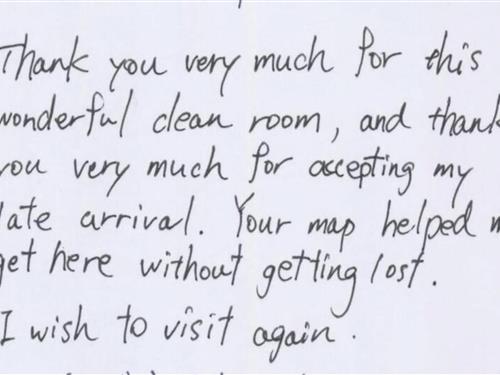 Thank you very much for this
wonderful clean room, and thank
you very much for accepting my
late arrival. Your map helped m
get here without getting lost.
I wish to visit again.